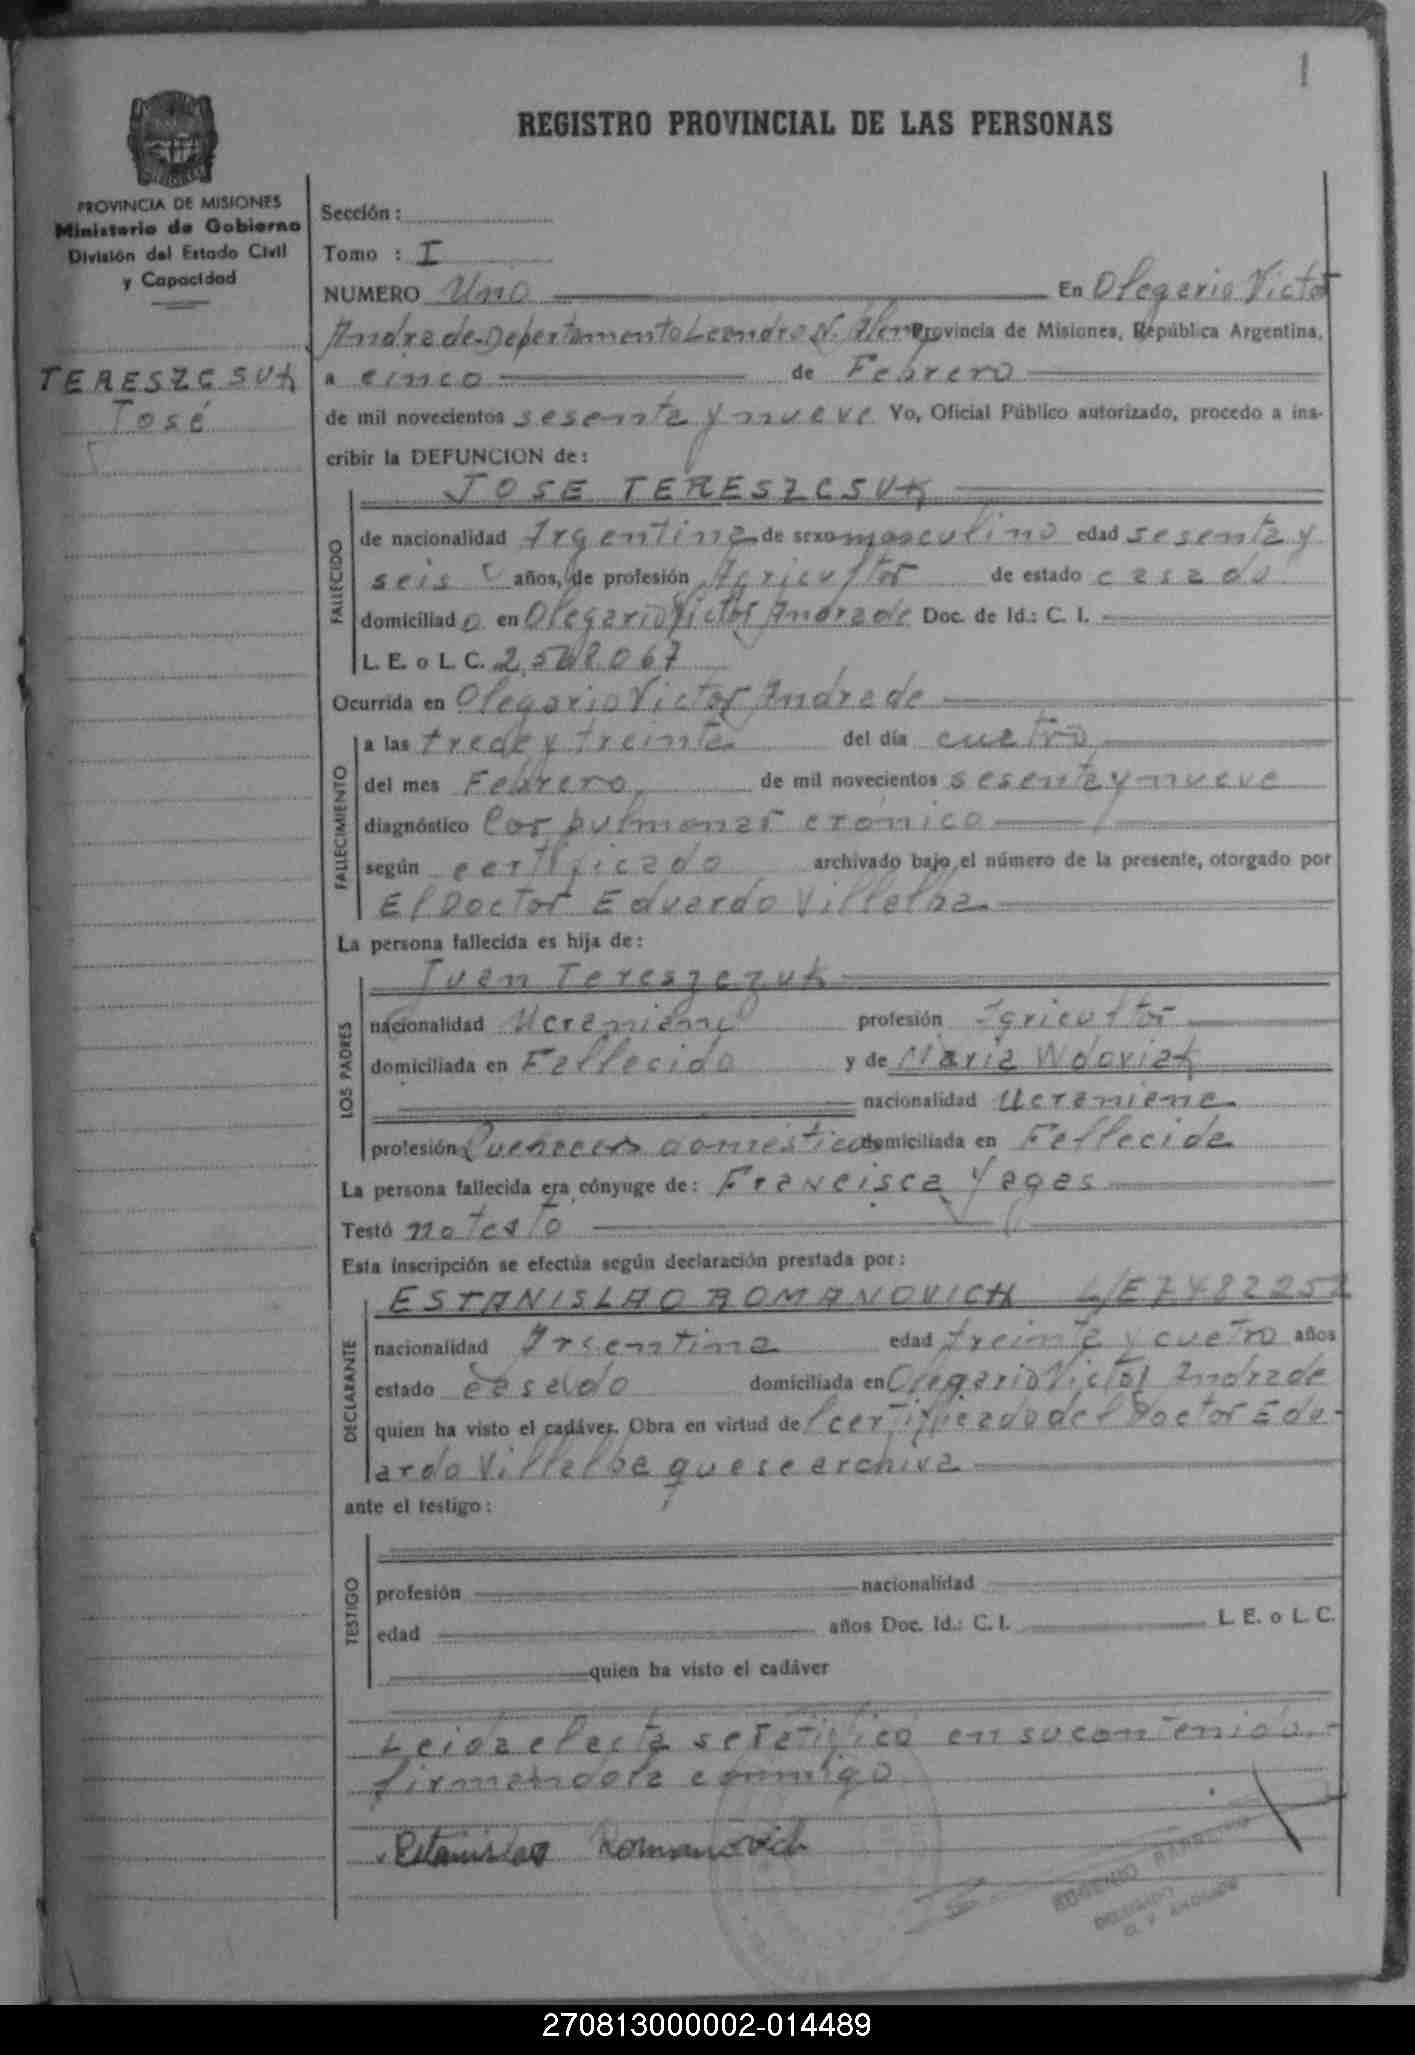 1
REGISTRO PROVINCIAL DE LAS PERSONAS
PROVINCIA DE MISIONES
Ministerio de Gobierno
División del Estado Civil
y Capacidad
TERESZCSUK
José
Sección :
Tomo : I
NUMERO Uno En Olegario Victor
Andrade-Departamento Leandro N. Alem Provincia de Misiones, República Argentina,
a cinco de Febrero
de mil novecientos sesenta y nueve Yo, Oficial Público autorizado, procedo a ins-
cribir la DEFUNCION de :
JOSE TERESZCSUK
FALLECIDO
de nacionalidad Argentina de sexo masculino edad sesenta y
seis años, de profesión Agricultor de estado casado
domiciliado en Olegario Victor Andrade Doc. de Id.: C. I.
L. E. o L. C. 2.568.067
Ocurrida en Olegario Victor Andrade
FALLECIMIENTO
a las y treinta del día cuatro
del mes Febrero de mil novecientos sesenta y nueve
diagnóstico Cor pulmonar crónico
según certificado archivado bajo el número de la presente, otorgado por
El Doctor Eduardo Villalba
La persona fallecida es hija de :
Juan Tereszczuk
LOS PADRES
nacionalidad Ucraniano profesión Agricultor
domiciliada en Fallecido y de Maria Wdoviak
nacionalidad Ucraniana
profesión Quehaceres domésticos domiciliada en Fallecida
La persona fallecida era cónyuge de : Francisca Yagas
Testó no testó
Esta inscripción se efectúa según declaración prestada por :
ESTANISLAO ROMANOVICH L/E 7482252
DECLARANTE
nacionalidad Argentina edad treinta y cuatro años
estado casado domiciliada en Olegario Victor Andrade
quien ha visto el cadáver. Obra en virtud del certificado del Doctor Edu-
ardo Villalba que se archiva
ante el testigo :
TESTIGO
profesión nacionalidad
edad años Doc. Id.: C. I. L. E. o L. C.
quien ha visto el cadáver
Leida el acta se ratificó en su contenido
firmandola conmigo
Estanislao Romanovich
EUGENIO
DELEGADO
O. V. ANDRADE
270813000002-014489